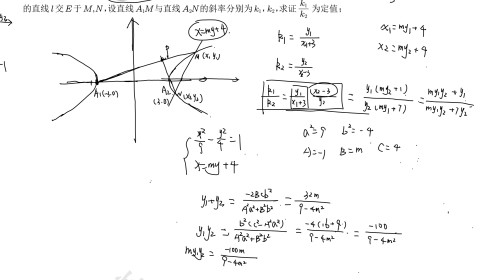 的直线 l 交 E 于 M,N,设直线 A₁M 与直线 A₂N 的斜率分别为 k₁,k₂,求证 k₁/k₂ 为定值:
x=my+4
k₁ = y₁/(x₁+3)
x₁=my₁+4
x₂=my₂+4
k₂ = y₂/(x₂-3)
A₁(-3,0)
A₂(3,0)
k₁/k₂ = y₁/(x₁+3) · (x₂-3)/y₂ = y₁(my₂+1)/y₂(my₁+7) = (my₁y₂+y₁)/(my₁y₂+7y₂)
a²=9 b²=-4
A=-1 B=m C=4
x²/9 - y²/4 = 1
x=my+4
y₁+y₂ = -2BCb²/(A²a²+B²b²) = 32m/(9-4m²)
y₁y₂ = b²(c²-A²a²)/(A²a²+B²b²) = /(9-4m²) = -100/(9-4m²)
my₁y₂ = -100m/(9-4m²)